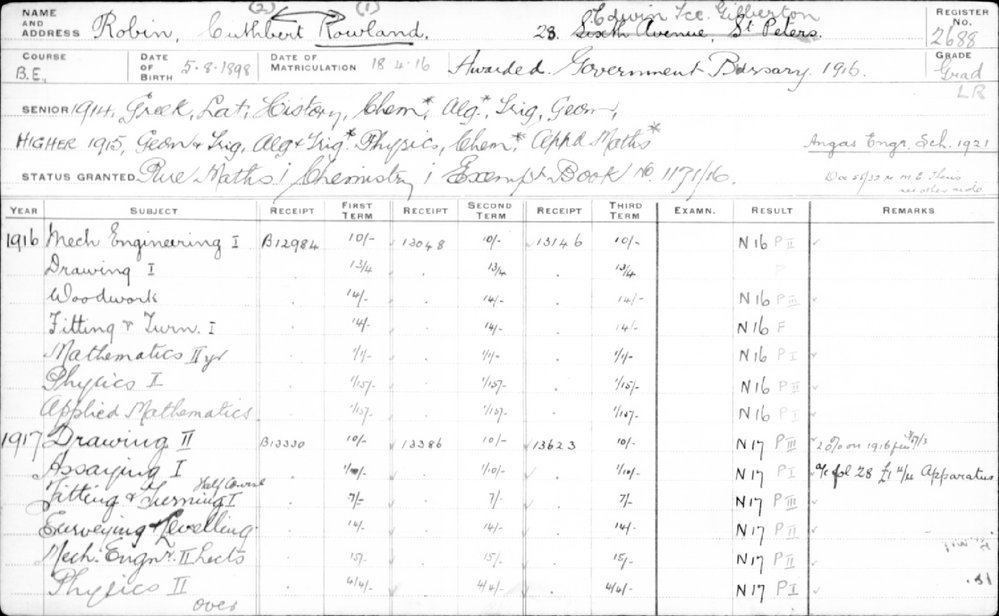 (2) (1)
NAME AND ADDRESS Robin, Cuthbert Rowland. 28. Sixth Avenue, St Peters. Edwin Tce. Gilberton REGISTER No. 2688
COURSE B.E. DATE OF BIRTH 5.8.1898 DATE OF MATRICULATION 18.4.16 Awarded Government Bursary 1916. GRADE Grad
LR
SENIOR 1914, Greek, Lat, History, Chem*, Alg*, Trig, Geom,
HIGHER 1915, Geom & Trig, Alg & Trig* Physics, Chem*, Appd Maths*
Angas Engr. Sch. 1921
STATUS GRANTED Pure Maths I Chemistry I Exempt Book No. 1171/16.
YEAR SUBJECT RECEIPT FIRST TERM RECEIPT SECOND TERM RECEIPT THIRD TERM EXAMN. RESULT REMARKS
1916 Mech Engineering I B12984 10/- 13048 10/- 13146 10/- N16 P II
Drawing I 13/4 13/4 13/4 P
Woodwork 14/- 14/- 14/- N16 P III
Fitting & Turn. I 14/- 14/- 14/- N16 F
Mathematics II yr 1/1/- 1/1/- 1/1/- N16 P I
Physics I 1/15/- 1/15/- 1/15/- N16 P II
Applied Mathematics 1/15/- 1/15/- 1/15/- N16 P I
1917 Drawing II B13330 10/- 13386 10/- 13623 10/- N17 P III 20% on 1916
Assaying I 1/10/- 1/10/- 1/10/- N17 P I fol 28 £1 Apparatus
Fitting & Turning I Half Course 7/- 7/- 7/- N17 P III
Surveying & Levelling 14/- 14/- 14/- N17 P II
Mech. Engnr. II Lects 15/- 15/- 15/- N17 P II
Physics II 4/4/- 4/4/- 4/4/- N17 P I
over